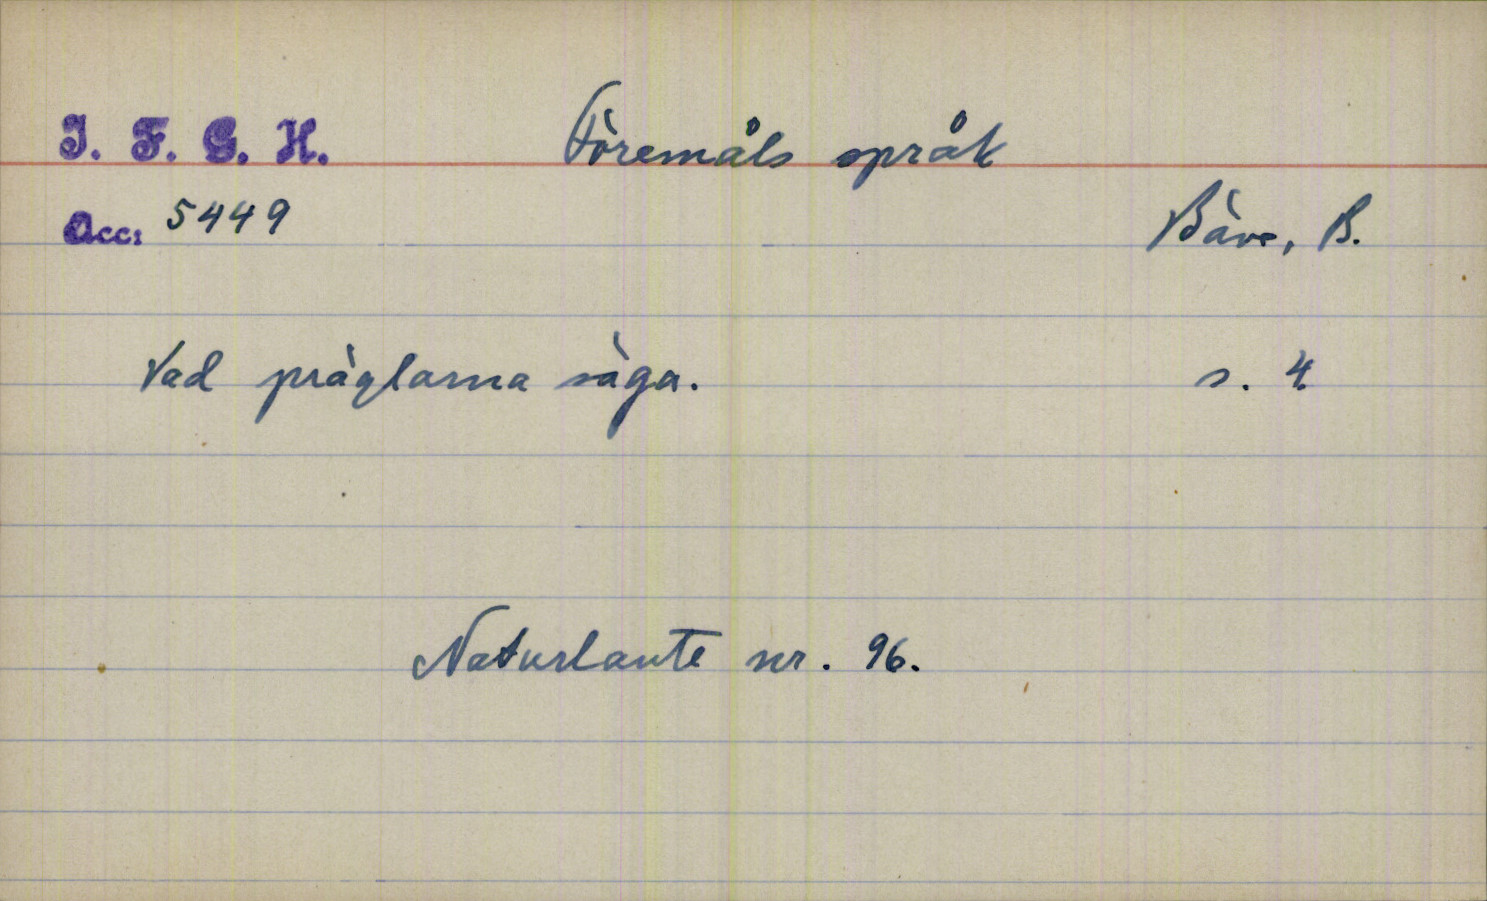 I. F. G. H. Föremåls språk
Acc: 5449 Bäve, B.
Vad präglarna säga. s. 4
Naturlaute nr. 96.